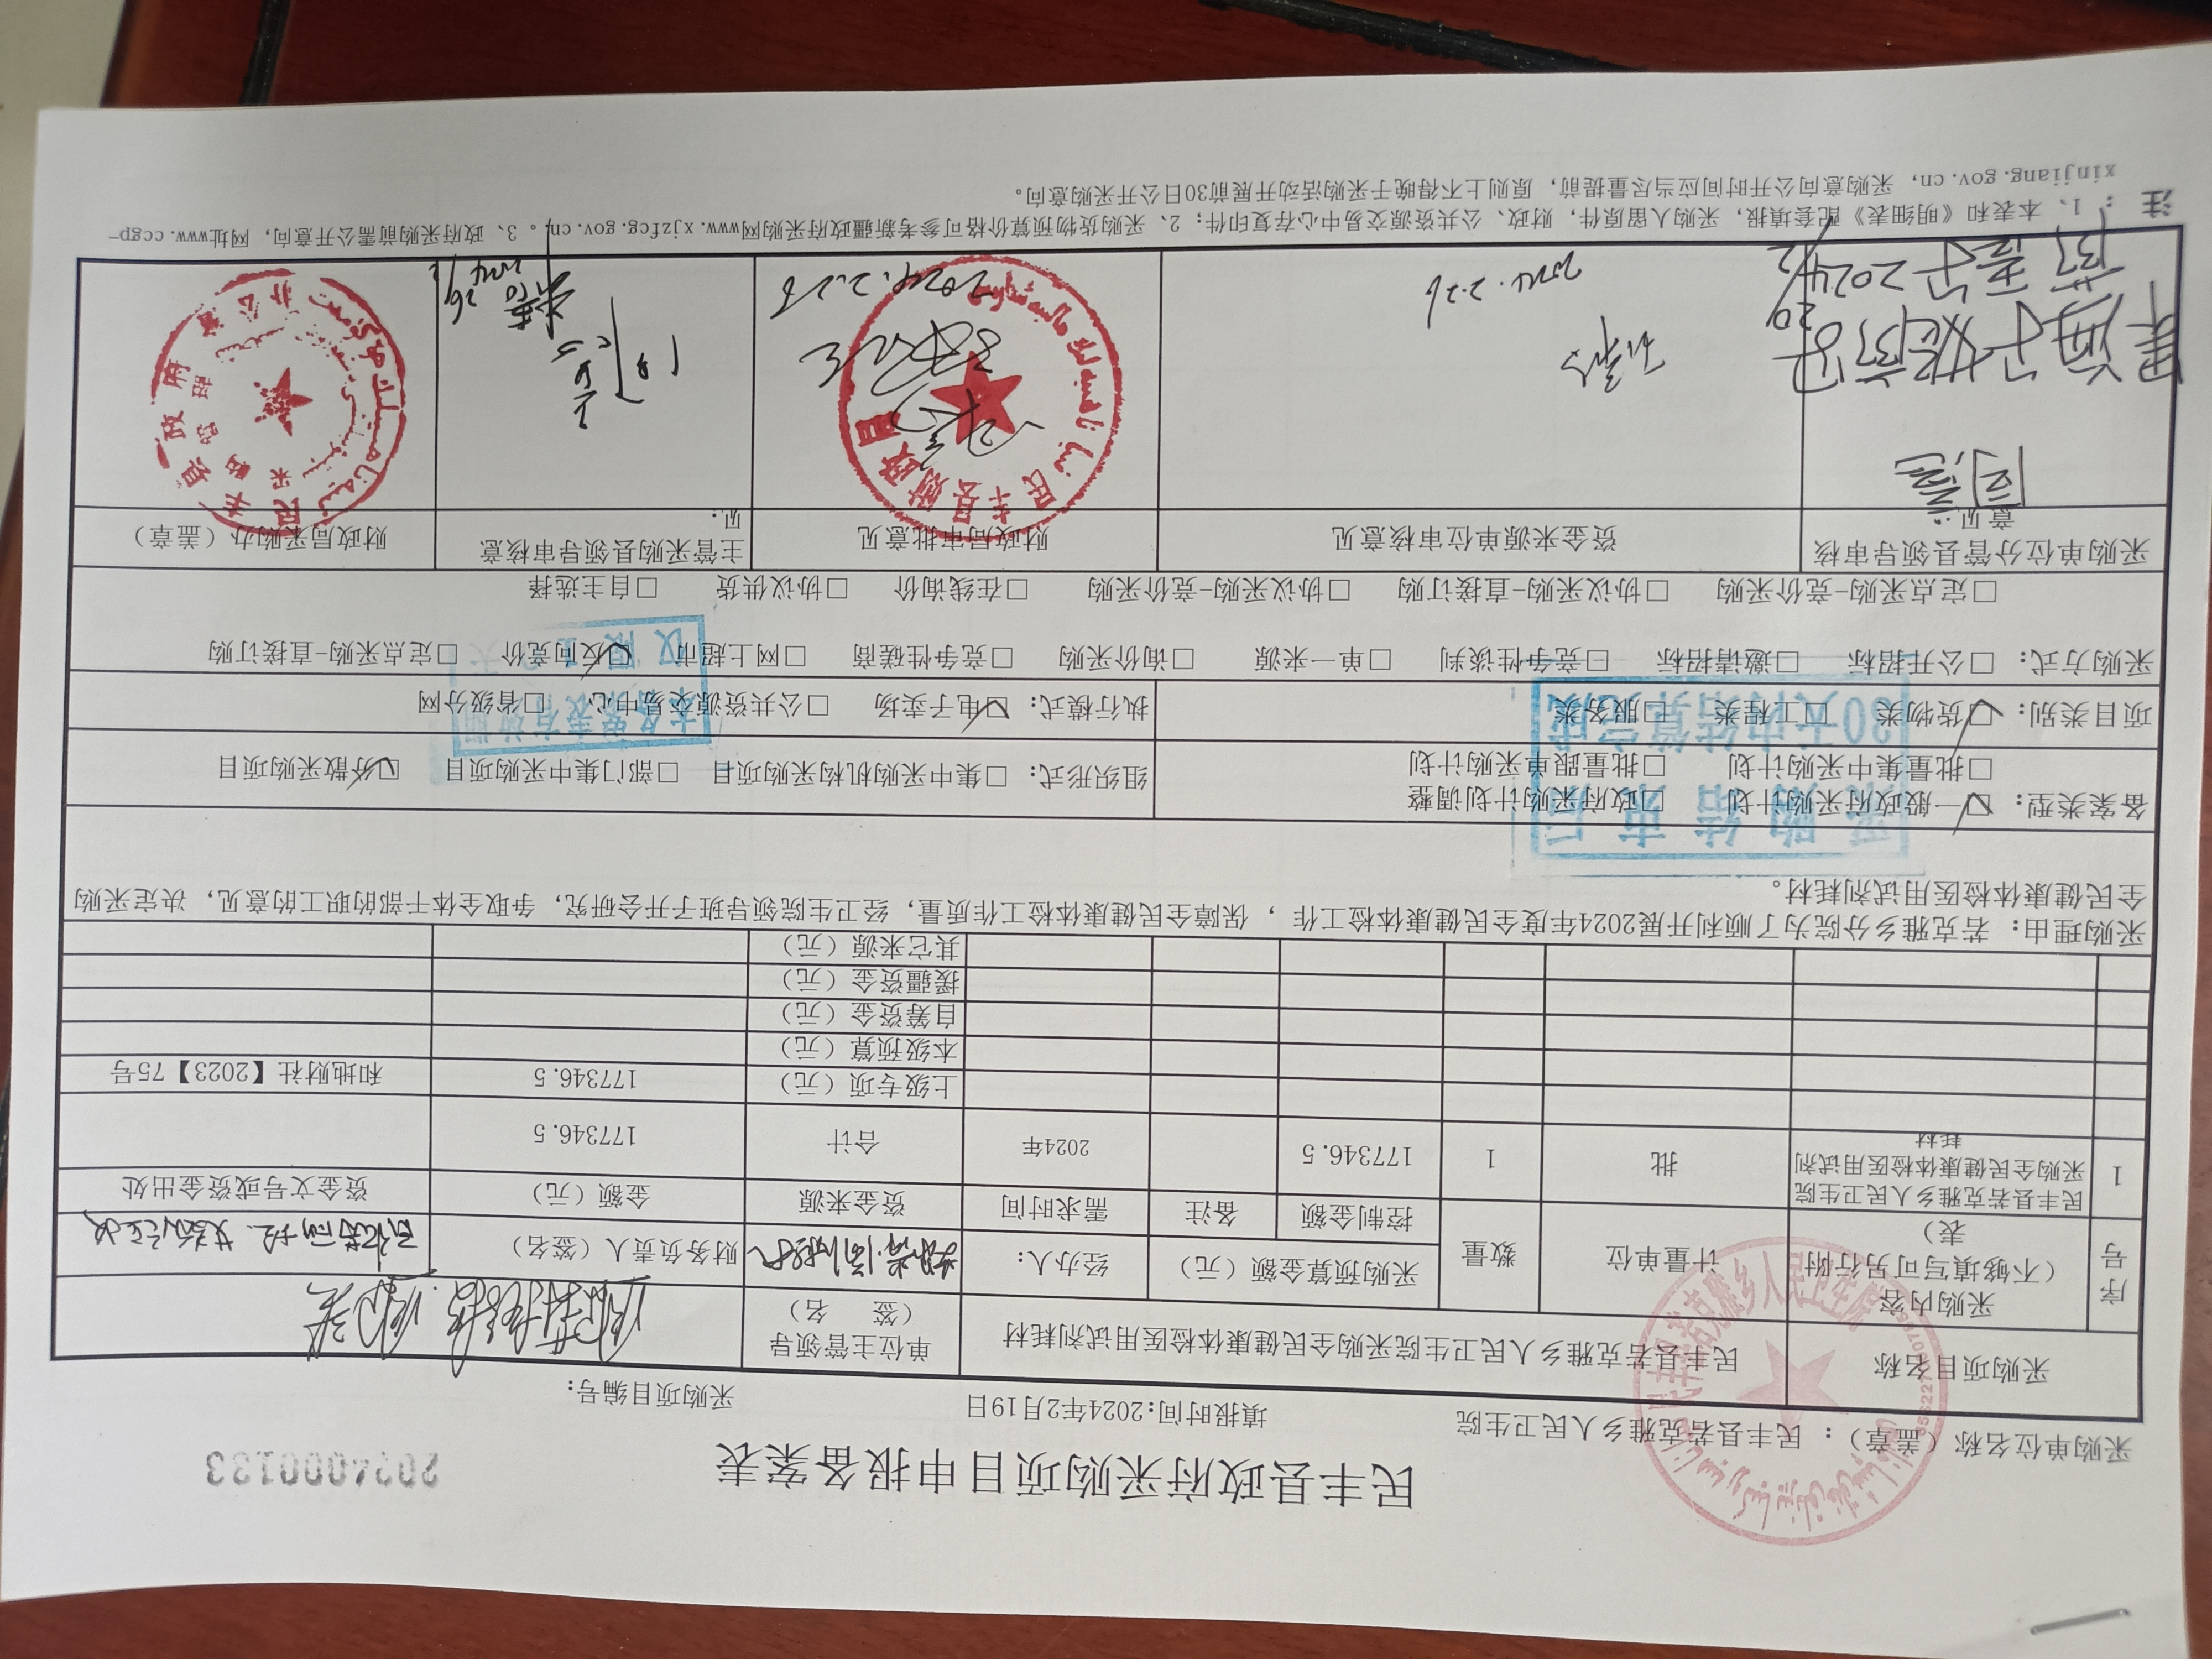 民丰县政府采购项目申报备案表
2024000133
采购单位名称（盖章）：民丰县若克雅乡人民卫生院 填报时间:2024年2月19日 采购项目编号:
采购项目名称 民丰县若克雅乡人民卫生院采购全民健康体检医用试剂耗材 单位主管领导（签 名）
序号 采购内容（不够填写可另行附表） 计量单位 数量 采购预算金额（元） 经办人: 财务负责人（签名）
控制金额 备注 需求时间 资金来源 金额（元） 资金文号或资金出处
1 民丰县若克雅乡人民卫生院采购全民健康体检医用试剂耗材 批 1 177346.5 2024年 合计 177346.5
上级专项（元） 177346.5 和地财社【2023】75号
本级预算（元）
自筹资金（元）
援疆资金（元）
其它来源（元）
采购理由: 若克雅乡分院为了顺利开展2024年度全民健康体检工作 ，保障全民健康体检工作质量，经卫生院领导班子开会研究，争取全体干部的职工的意见，决定采购
全民健康体检医用试剂耗材。
备案类型: ☑一般政府采购计划 □政府采购计划调整
□批量集中采购计划 □批量跟单采购计划
组织形式: □集中采购机构采购项目 □部门集中采购项目 ☑分散采购项目
项目类别: ☑货物类 □工程类 □服务类 执行模式: ☑电子卖场 □公共资源交易中心 □省级分网
采购结束后
30天内结算完成
本备案表有效期
仅限 天
采购方式: □公开招标 □邀请招标 □竞争性谈判 □单一来源 □询价采购 □竞争性磋商 □网上超市 ☑反向竞价 □定点采购-直接订购
□定点采购-竞价采购 □协议采购-直接订购 □协议采购-竞价采购 □在线询价 □协议供货 □自主选择
采购单位分管县领导审核意见: 资金来源单位审核意见 财政局审批意见 主管采购县领导审核意见: 财政局采购办（盖章）
同意
2024.2.26
2024.2.28
民丰县若克雅乡人民卫生院
民丰县财政局
民丰县政府采购管理办公室
注 ：1、本表和《明细表》配套填报，采购人留原件，财政、公共资源交易中心存复印件；2、采购货物预算价格可参考新疆政府采购网www.xjzfcg.gov.cn。3、政府采购前需公开意向，网址www.ccgp-
xinjiang.gov.cn，采购意向公开时间应当尽量提前，原则上不得晚于采购活动开展前30日公开采购意向。